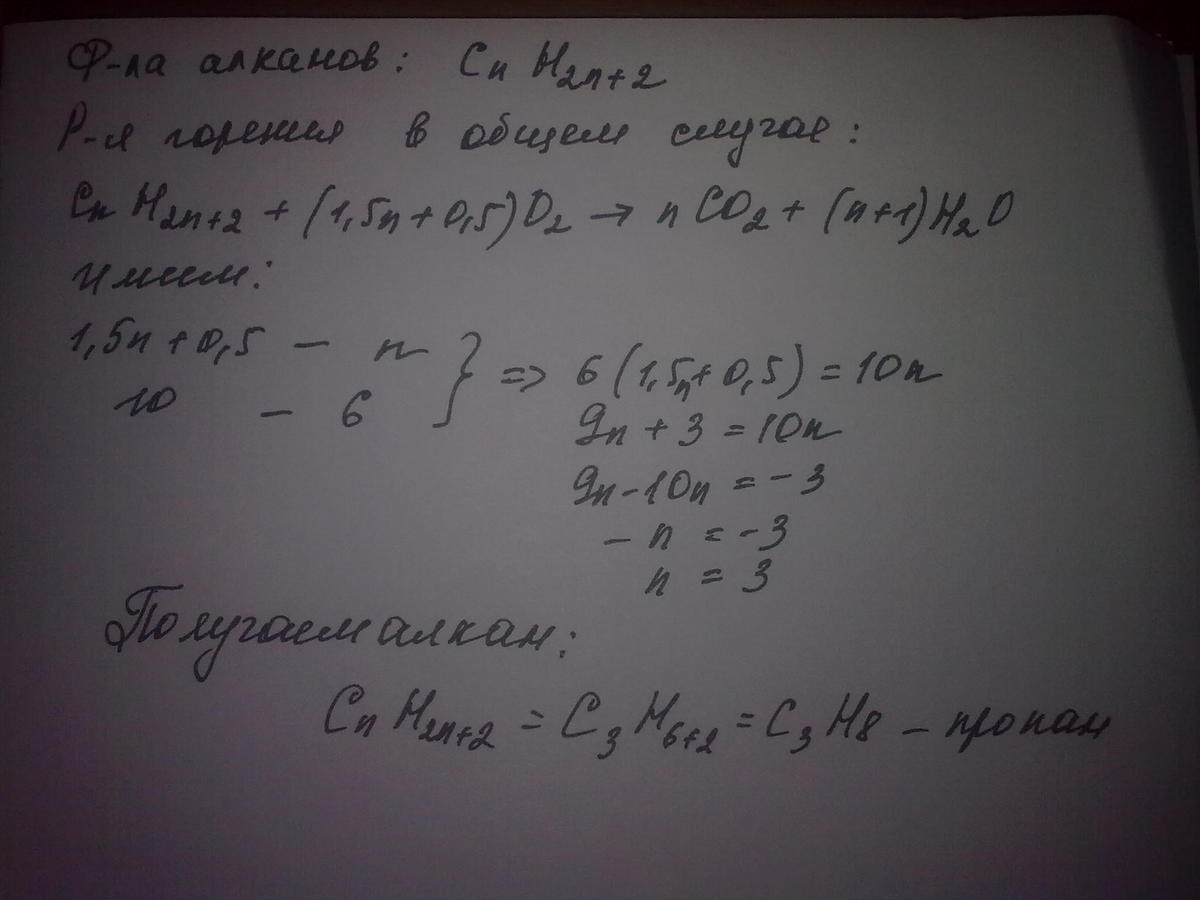 Ф-ла алканов: CnH2n+2
Р-я горения в общем случае:
CnH2n+2 + (1,5n+0,5)O2 → nCO2 + (n+1)H2O
Имеем:
1,5n+0,5 — n } => 6(1,5n+0,5) = 10n
10 — 6
9n + 3 = 10n
9n-10n = -3
-n = -3
n = 3
Получаем алкан:
CnH2n+2 = C3H6+2 = C3H8 – пропан